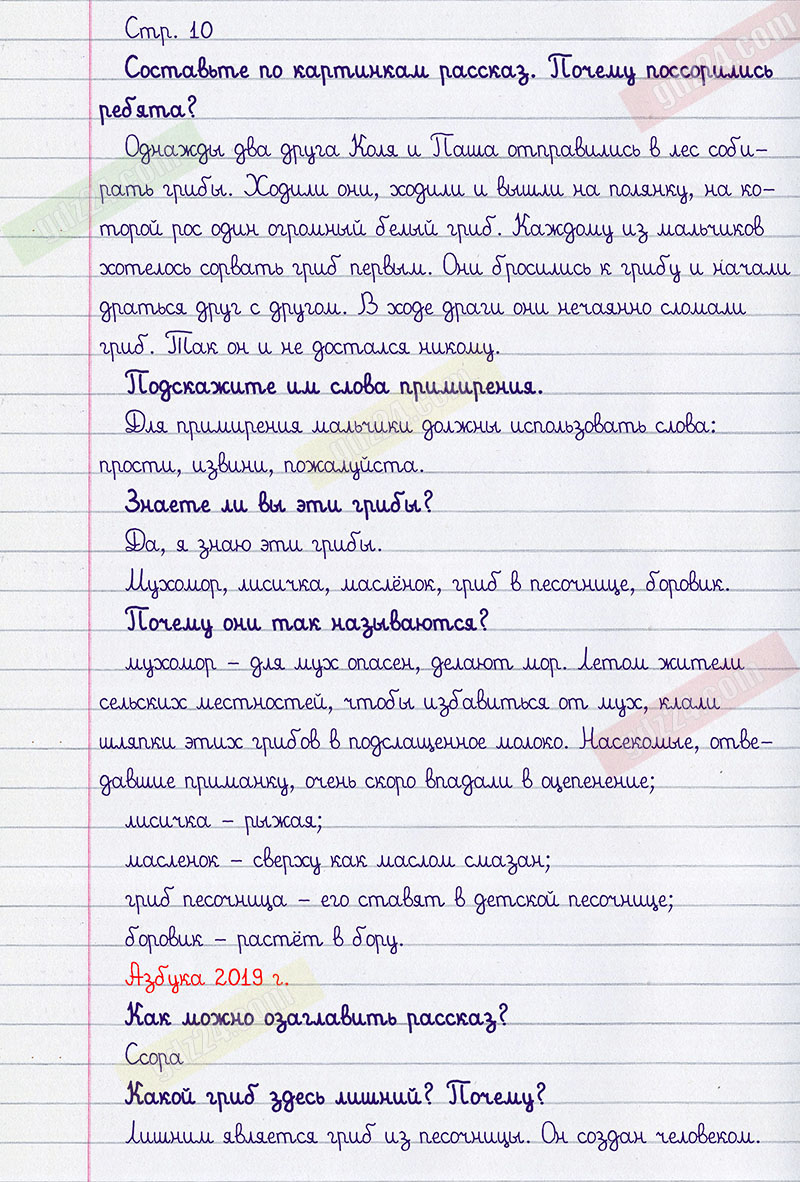 Стр. 10
Составьте по картинкам рассказ. Почему поссорились
ребята?
Однажды два друга Коля и Паша отправились в лес соби-
рать грибы. Ходили они, ходили и вышли на полянку, на ко-
торой рос один огромный белый гриб. Каждому из мальчиков
хотелось сорвать гриб первым. Они бросились к грибу и начали
драться друг с другом. В ходе драги они нечаянно сломали
гриб. Так он и не достался никому.
Подскажите им слова примирения.
Для примирения мальчики должны использовать слова:
прости, извини, пожалуйста.
Знаете ли вы эти грибы?
Да, я знаю эти грибы.
Мухомор, лисичка, маслёнок, гриб в песочнице, боровик.
Почему они так называются?
мухомор – для мух опасен, делают мор. Летом жители
сельских местностей, чтобы избавиться от мух, клали
шляпки этих грибов в подслащенное молоко. Насекомые, отве-
давшие приманку, очень скоро впадали в оцепенение;
лисичка – рыжая;
масленок – сверху как маслом смазан;
гриб песочница – его ставят в детской песочнице;
боровик – растёт в бору.
Азбука 2019 г.
Как можно озаглавить рассказ?
Ссора
Какой гриб здесь лишний? Почему?
Лишним является гриб из песочницы. Он создан человеком.
gdz24.com
gdz24.com
gdz24.com
gdz24.com
gdz24.com